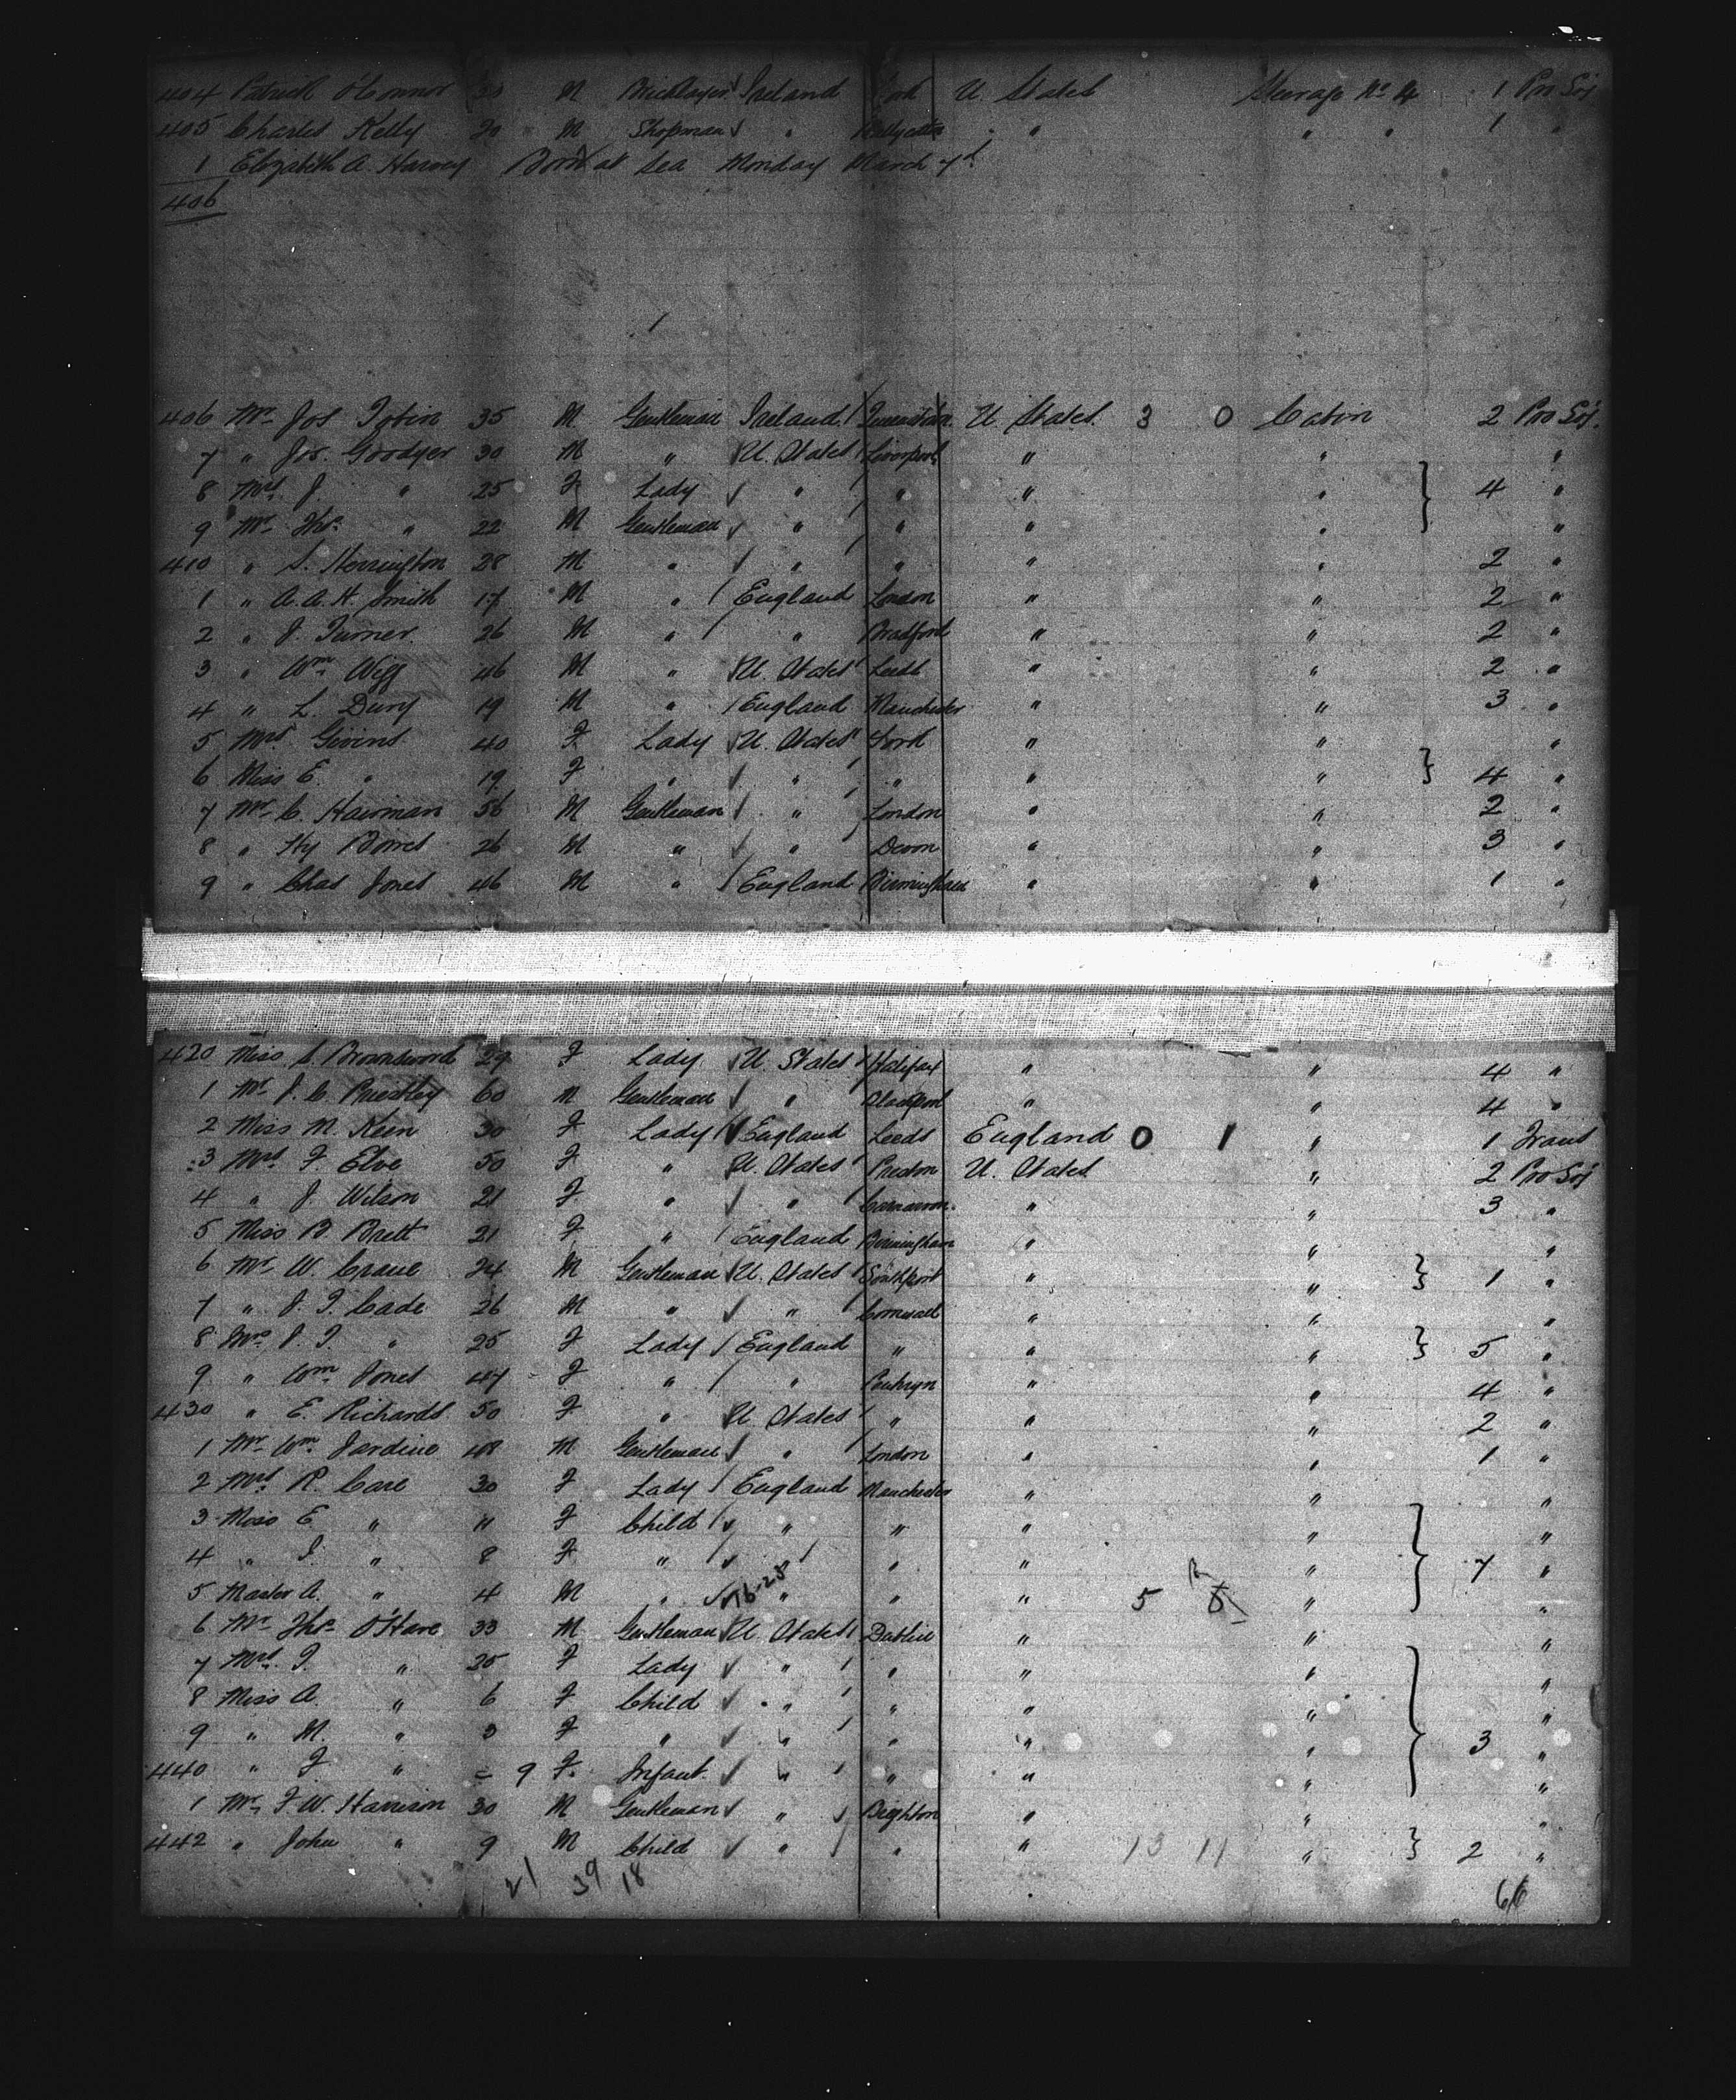 404 Patrick O'Connor 30 M Bricklayer Ireland Cork U. States Steerage No 4 1 Pro Soj
405 Charles Kelly 20 M Shopman " " " " 1 "
1 Elizabeth A. Harvey Born at Sea Monday March 7th
406
406 Mr Jos Tobin 35 M Gentleman Ireland Queenstown U. States 3 0 Cabin 2 Pro Soj.
7 " Jos. Goodyer 30 M " U. States Liverpool " " "
8 Mrs J. " 25 F Lady " " " " 4 "
9 Mr Thos. " 22 M Gentleman " " " " "
410 " S. Herrington 28 M " " " " " 2 "
1 " A. A. H. Smith 17 M " England London " " 2 "
2 " J. Turner 26 M " " Bradford " " 2 "
3 " Wm Wigg 46 M " U. States Leeds " " 2 "
4 " L. Dury 19 M " England Manchester " " 3 "
5 Mrs Givins 40 F Lady U. States York " " "
6 Miss E. " 19 F " " " " " 4 "
7 Mr C. Hairman 56 M Gentleman " London " " 2 "
8 " Hy 26 M " " Devon " " 3 "
9 " Chas Jones 46 M " England Birmingham " " 1 "
420 Miss S. Brownsword 29 F Lady U. States Halifax " " 4 "
1 Mr J. C. Priestley 60 M Gentleman " " " 4 "
2 Miss M. Keen 30 F Lady England Leeds England 0 1 " 1 Trans
3 Mrs F. Elve 50 F " U. States Preston U. States " 2 Pro Soj
4 " J. Wilson 21 F " " Carnarvon " " 3 "
5 Miss B. Brett 21 F " England Birmingham " " "
6 Mr W. Crane 24 M Gentleman U. States Southport " " 1 "
7 " J. T. Cade 26 M " " Cornwall " " "
8 Mrs J. T. " 25 F Lady England " " " 5 "
9 " Wm Jones 47 F " " Penhryn " " 4 "
430 " E. Richards 50 F " U. States " " " 2 "
1 Mr Wm Jardine 48 M Gentleman " London " " 1 "
2 Mrs R. Care 30 F Lady England Manchester " " "
3 Miss E " 11 F Child " " " " "
4 " I. " 8 F " " " " " 7 "
5 Master A. " 4 M " " " " 5 "
6 Mr Thos O'Hare 33 M Gentleman U. States Dublin " " "
7 Mrs T. " 25 F Lady " " " " "
8 Miss A. " 6 F Child " " " " "
9 " M. " 3 F " " " " " 3 "
440 " J " 9 F. Infant. " " " " "
1 Mr F. W. Harrison 30 M Gentleman " Brighton " " "
442 " John " 9 M Child " " " 13 11 " 2 "
21 39 18